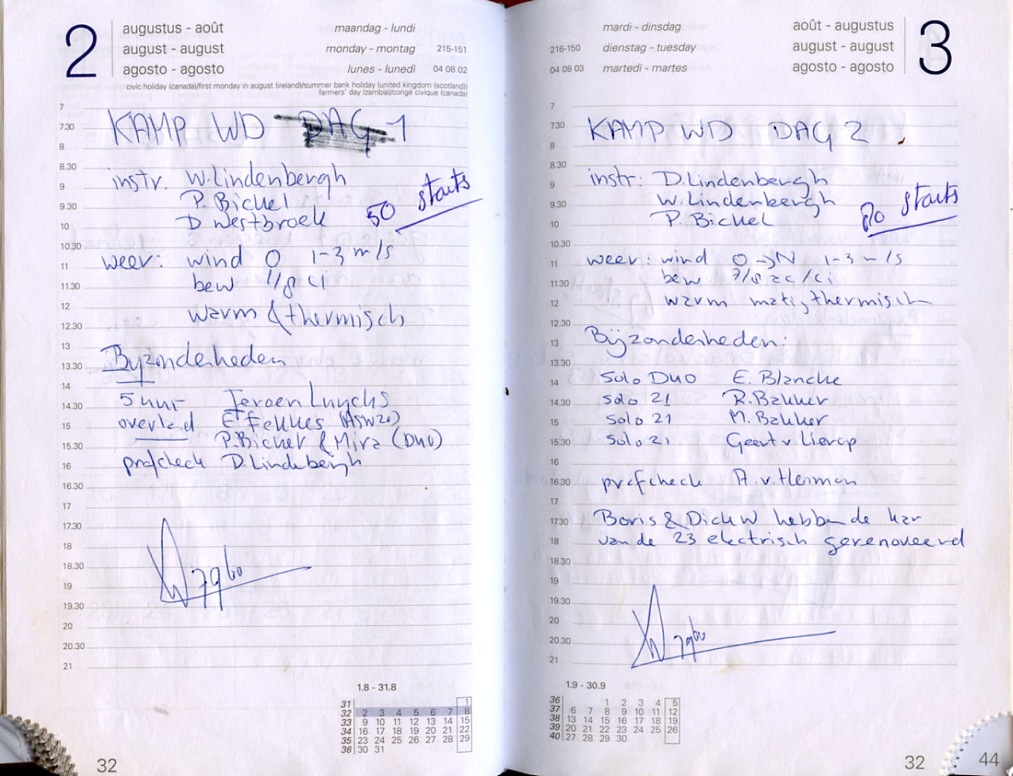 2
augustus - août maandag - lundi
august - august monday - montag 215-151
agosto - agosto lunes - lunedì 04 08 02
civic holiday (canada)/first monday in august (ireland)/summer bank holiday (united kingdom (scotland))
farmers' day (zambia)/congé civique (canada)
7
7.30 KAMP WD DAG 1
8
8.30
9 instr. W. Lindenbergh
9.30 P. Bickel 50 starts
10 D Westbroek
10.30
11 weer: wind O 1-3 m/s
11.30 bew 1/8 ci
12 warm & thermisch
12.30
13
13.30 Byzonderheden
14
14.30 5 uur Jeroen Luycks
15 overland E Fekkes (ASW20)
15.30 P. Bickel & Mira (Duo)
16 profcheck D. Lindebergh
16.30
17
17.30
18
18.30
19
19.30
20
20.30
21
1.8 - 31.8
31 1
32 2 3 4 5 6 7 8
33 9 10 11 12 13 14 15
34 16 17 18 19 20 21 22
35 23 24 25 26 27 28 29
36 30 31
32
mardi - dinsdag août - augustus
216-150 dienstag - tuesday august - august
04 08 03 martedì - martes agosto - agosto
3
7
7.30 KAMP WD DAG 2
8
8.30
9 instr: D. Lindenbergh
9.30 W. Lindenbergh 80 starts
10 P. Bickel
10.30
11 weer: wind O → N 1-3 m/s
11.30 bew 7/8 ac/ci
12 warm matig thermisch
12.30
13 Bijzonderheden:
13.30
14 Solo Duo E. Blanche
14.30 Solo 21 R. Bakker
15 Solo 21 M. Bakker
15.30 Solo 21 Geert v Lierop
16
16.30 profcheck A. v. Heiman
17
17.30 Boris & Dick W hebben de kar
18 van de 23 electrisch gerenoveerd
18.30
19
19.30
20
20.30
21
1.9 - 30.9
36 1 2 3 4 5
37 6 7 8 9 10 11 12
38 13 14 15 16 17 18 19
39 20 21 22 23 24 25 26
40 27 28 29 30
32 44